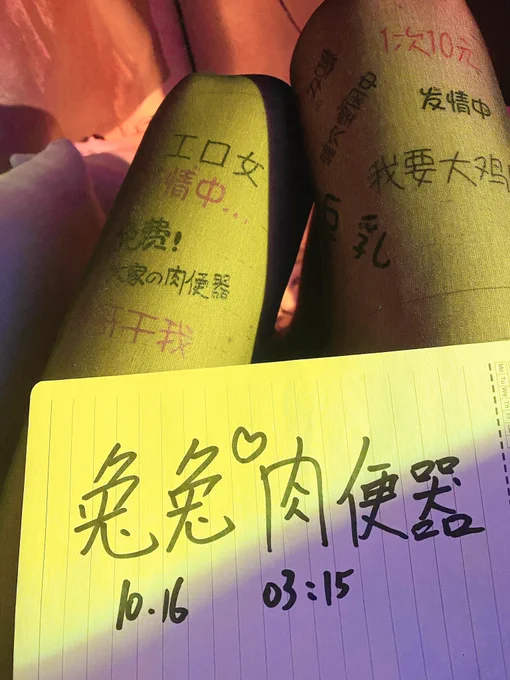 工口女
情中...
免费!
家の肉便器
干我
1次10元
发情中
我要大鸡
乳
兔兔♡肉便器
10.16 03:15